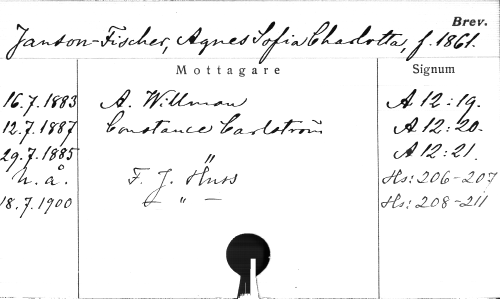 Brev.
Janson-Fischer, Agnes Sofia Charlotta, f. 1861.
Mottagare Signum
16.7.1883 A. Willman A 12:19.
12.7.1887 Constance Carlström A 12:20.
29.7.1885 " A 12:21.
n.å. F. J. Huss Hs: 206-207
18.7.1900 — " — Hs: 208-211